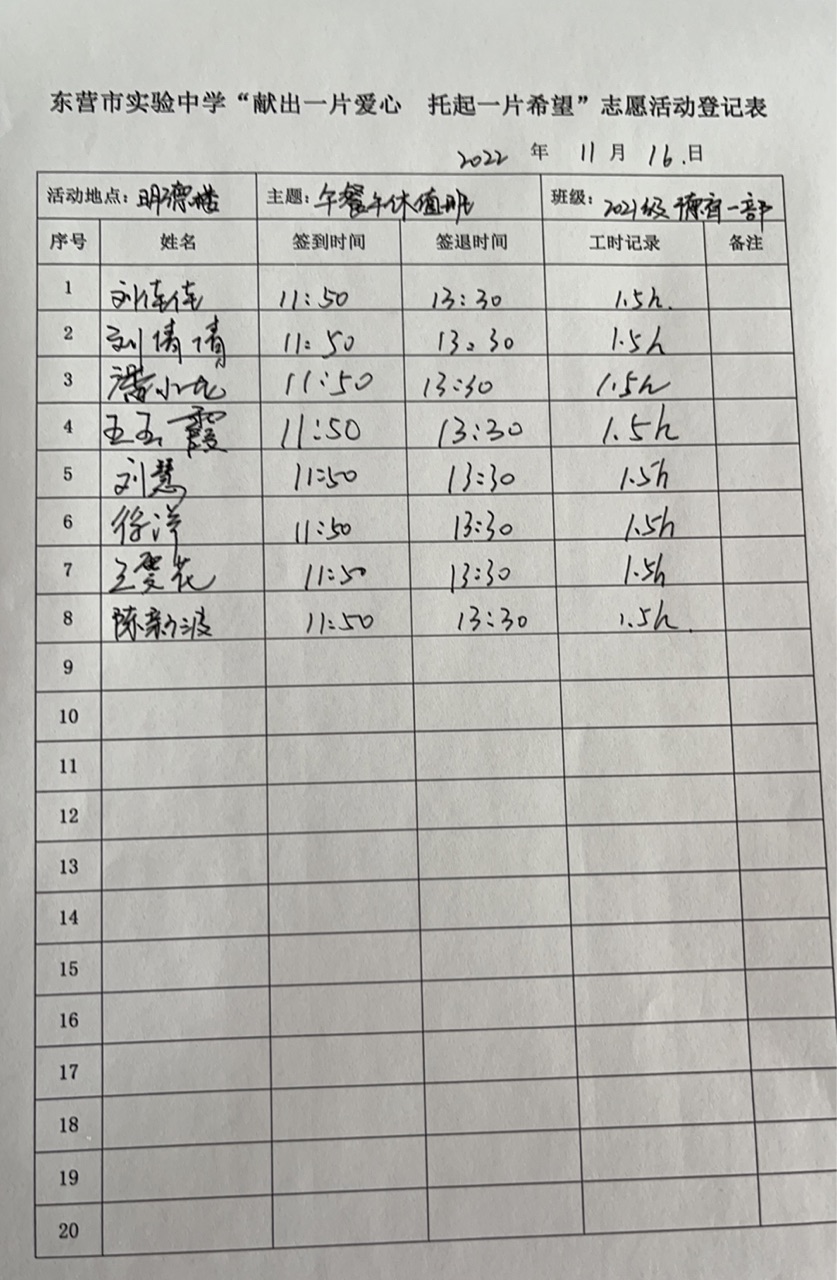 东营市实验中学“献出一片爱心 托起一片希望”志愿活动登记表
2022 年 11 月 16.日
活动地点: 明德楼 主题: 午餐午休值班 班级: 2021级 德育一部
序号 姓名 签到时间 签退时间 工时记录 备注
1 刘佳佳 11:50 13:30 1.5h.
2 刘倩倩 11:50 13:30 1.5h
3 小 11:50 13:30 1.5h
4 王玉霞 11:50 13:30 1.5h
5 刘慧 11:50 13:30 1.5h
6 徐洋 11:50 13:30 1.5h
7 王爱花 11:50 13:30 1.5h
8 陈新波 11:50 13:30 1.5h
9
10
11
12
13
14
15
16
17
18
19
20